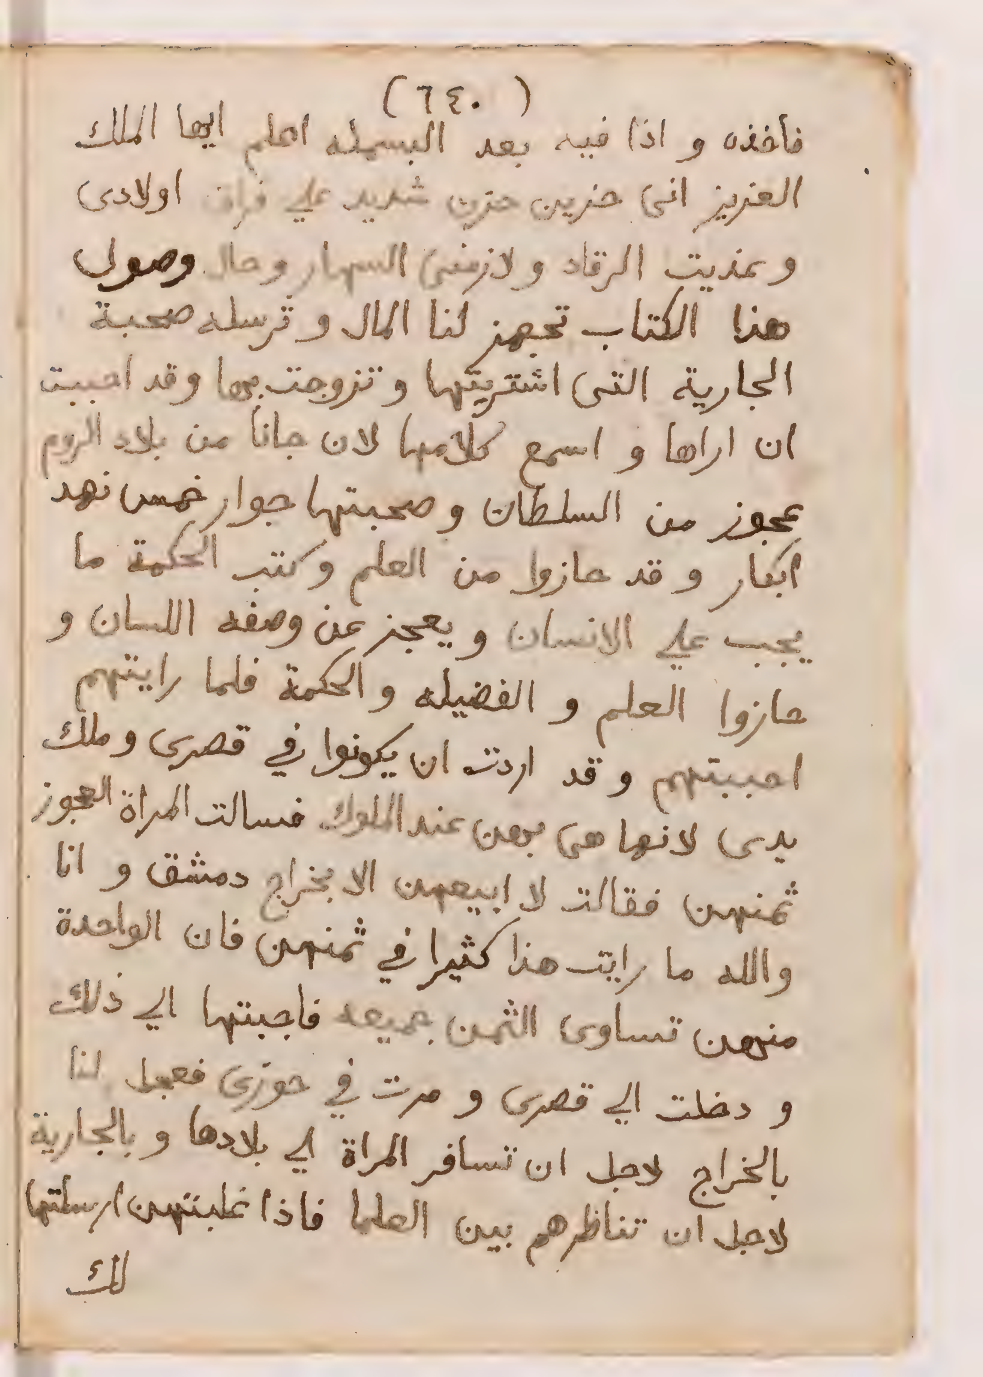 (٦٤٠)
فأخذه و اذا فيه بعد البسمله اعلم ايها الملك
العزيز انى حزين حزن شديد علي فراق اولادى
و عذيت الرقاد و لازمنى السهار وحال وصول
هذا الكتاب تجهز لنا المال و ترسله صحبة
الجارية التى اشتريتها و تزوجت بها وقد احببت
ان اراها و اسمع كلامها لان جانا من بلاد الروم
عجوز من السلطان و صحبتها جوار خمس نهد
ابكار و قد حازوا من العلم و كتب الحكمة ما
يجب علي الانسان و يعجز عن وصفه اللسان و
حازوا العلم و الفضيله و الحكمة فلما رايتهم
احببتهم و قد اردت ان يكونوا في قصرى و ملك
يدى لانها هى بهن عند الملوك فسالت المراة العجوز
ثمنهن فقالت لا ابيعهن الا بخراج دمشق و انا
والله ما رايت هذا كثيرا في ثمنهن فان الواحدة
منهن تساوى الثمن جميعه فاجبتها الي ذلك
و دخلت الي قصرى و مرت في حوزى فعجل لنا
بالخراج لاجل ان تسافر المراة الي بلادها و بالجارية
لاجل ان تناظرهم بين العلما فاذا غلبتهن ارسلتها
لك